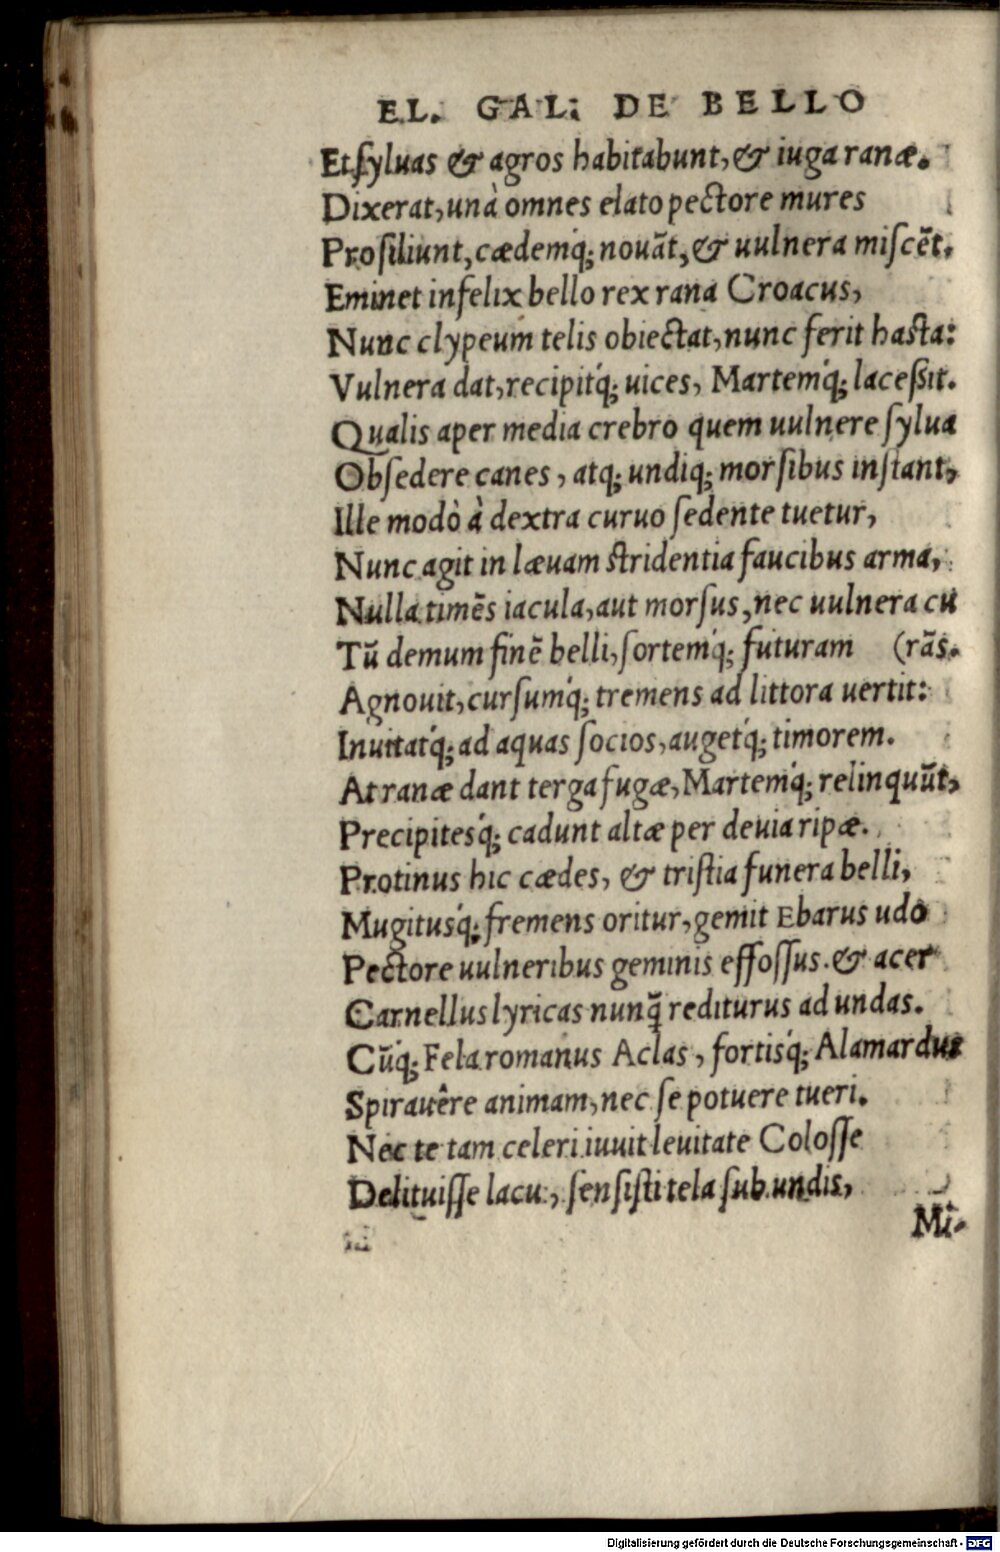 EL. GAL. DE BELLO
Et syluas & agros habitabunt, & iuga ranæ.
Dixerat, unà omnes elato pectore mures
Prosiliunt, cædemq́; nouāt, & uulnera miscēt.
Eminet infelix bello rex rana Croacus,
Nunc clypeum telis obiectat, nunc ferit hasta:
Vulnera dat, recipitq́; uices, Martemq́; lacessit.
Qualis aper media crebro quem uulnere sylua
Obsedere canes, atq; undiq; morsibus instant,
Ille modò à dextra curuo se dente tuetur,
Nunc agit in læuam stridentia faucibus arma,
Nulla timēs iacula, aut morsus, nec uulnera cu
Tū demum finē belli, sortemq́; futuram (rās.
Agnouit, cursumq́; tremens ad littora uertit:
Inuitatq́; ad aquas socios, augetq́; timorem.
At ranæ dant terga fugæ, Martemq́; relinquūt,
Precipitesq́; cadunt altæ per deuia ripæ.
Protinus hic cædes, & tristia funera belli,
Mugitusq́; fremens oritur, gemit Ebarus udo
Pectore uulneribus geminis effossus. & acer
Carnellus lyricas nunq̄ rediturus ad undas.
Cūq́; Fela romanus Aclas, fortisq́; Alamardus
Spirauêre animam, nec se potuere tueri.
Nec te tam celeri iuuit leuitate Colosse
Delituisse lacu, sensisti tela sub undis,
Mi-
Digitalisierung gefördert durch die Deutsche Forschungsgemeinschaft - DFG